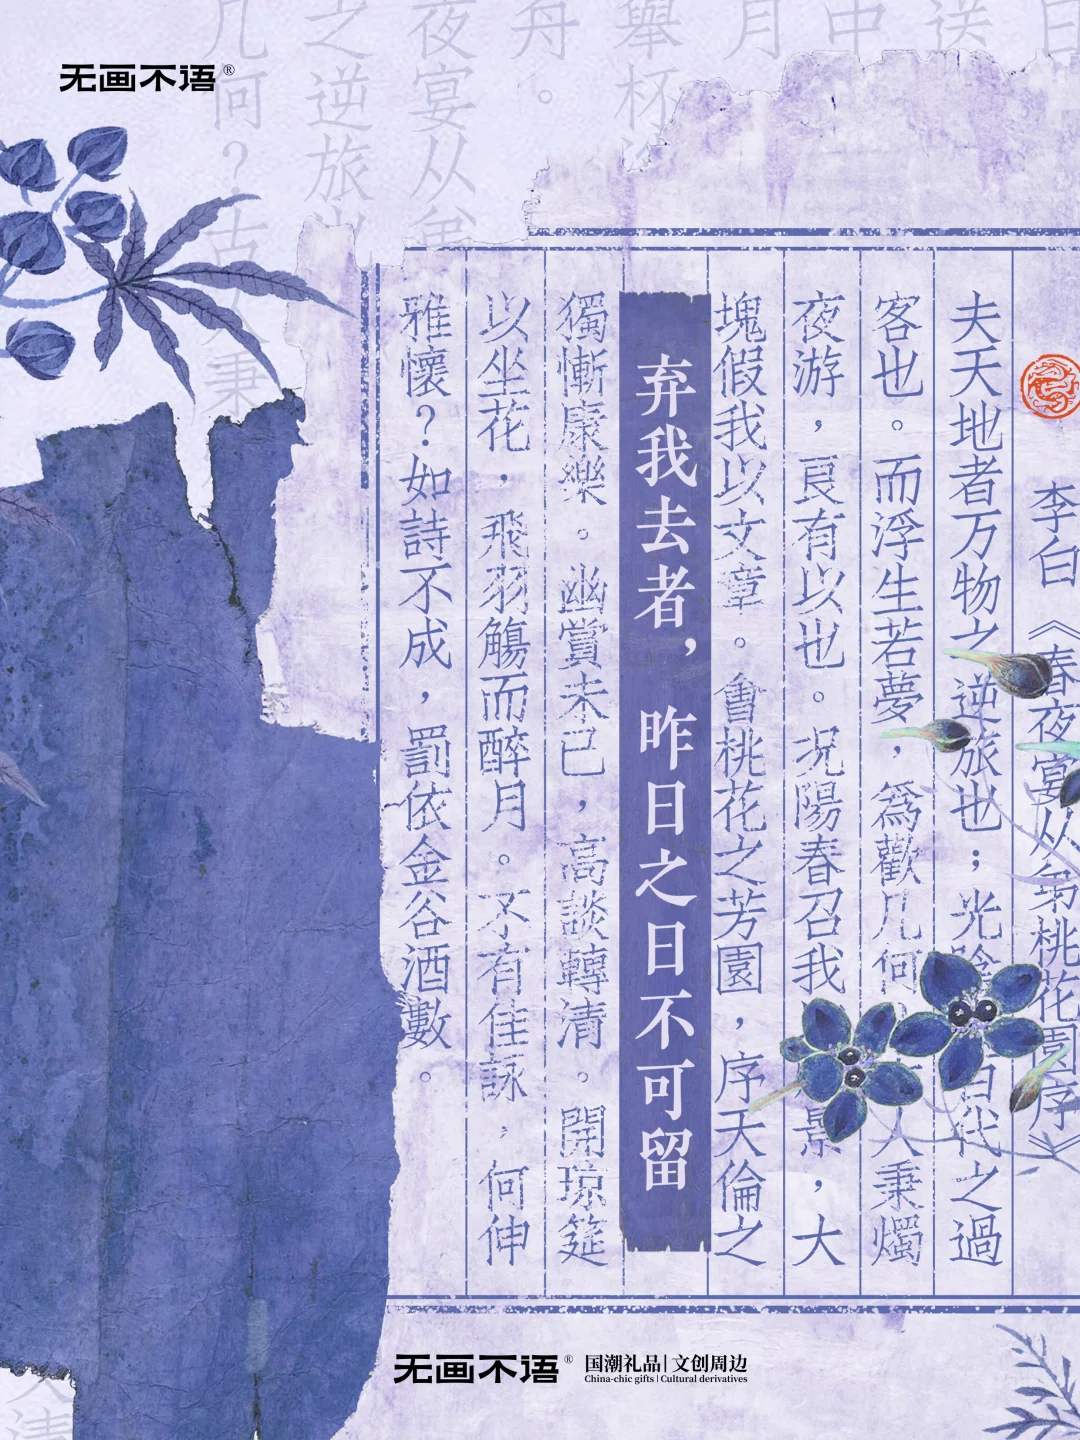 无画不语®
日
送
中
月
舉杯
舟。
夜宴从弟
之逆旅也
几何？古人秉
李白 《春夜宴从弟桃花園序》
夫天地者万物之逆旅也；光陰百代之過
客也。而浮生若夢，為歡几何人秉燭
夜游，良有以也。况陽春召我景，大
塊假我以文章。會桃花之芳園，序天倫之
弃我去者，昨日之日不可留
獨慚康樂。幽賞未已，高談轉清。開琼筵
以坐花，飛羽觴而醉月。不有佳詠，何伸
雅懷？如詩不成，罰依金谷酒數。
清
无画不语®
国潮礼品|文创周边
China-chic gifts | Cultural derivatives